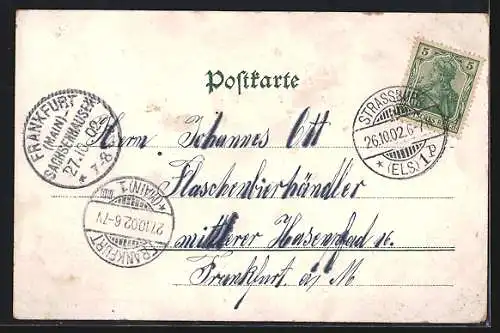 Postkarte
5
5
STRASSBURG
26.10.02.6-7
* (ELS.) 1.p
FRANKFURT
(MAIN)-
SACHSENHAUSEN
27.10.02
* 7-8
Herrn Johannes Ott
Flaschenbierhändler
mittlerer Hasenpfad
Frankfurt a/M
* (MAIN) 1
27.10.02.6-7V
FRANKFURT